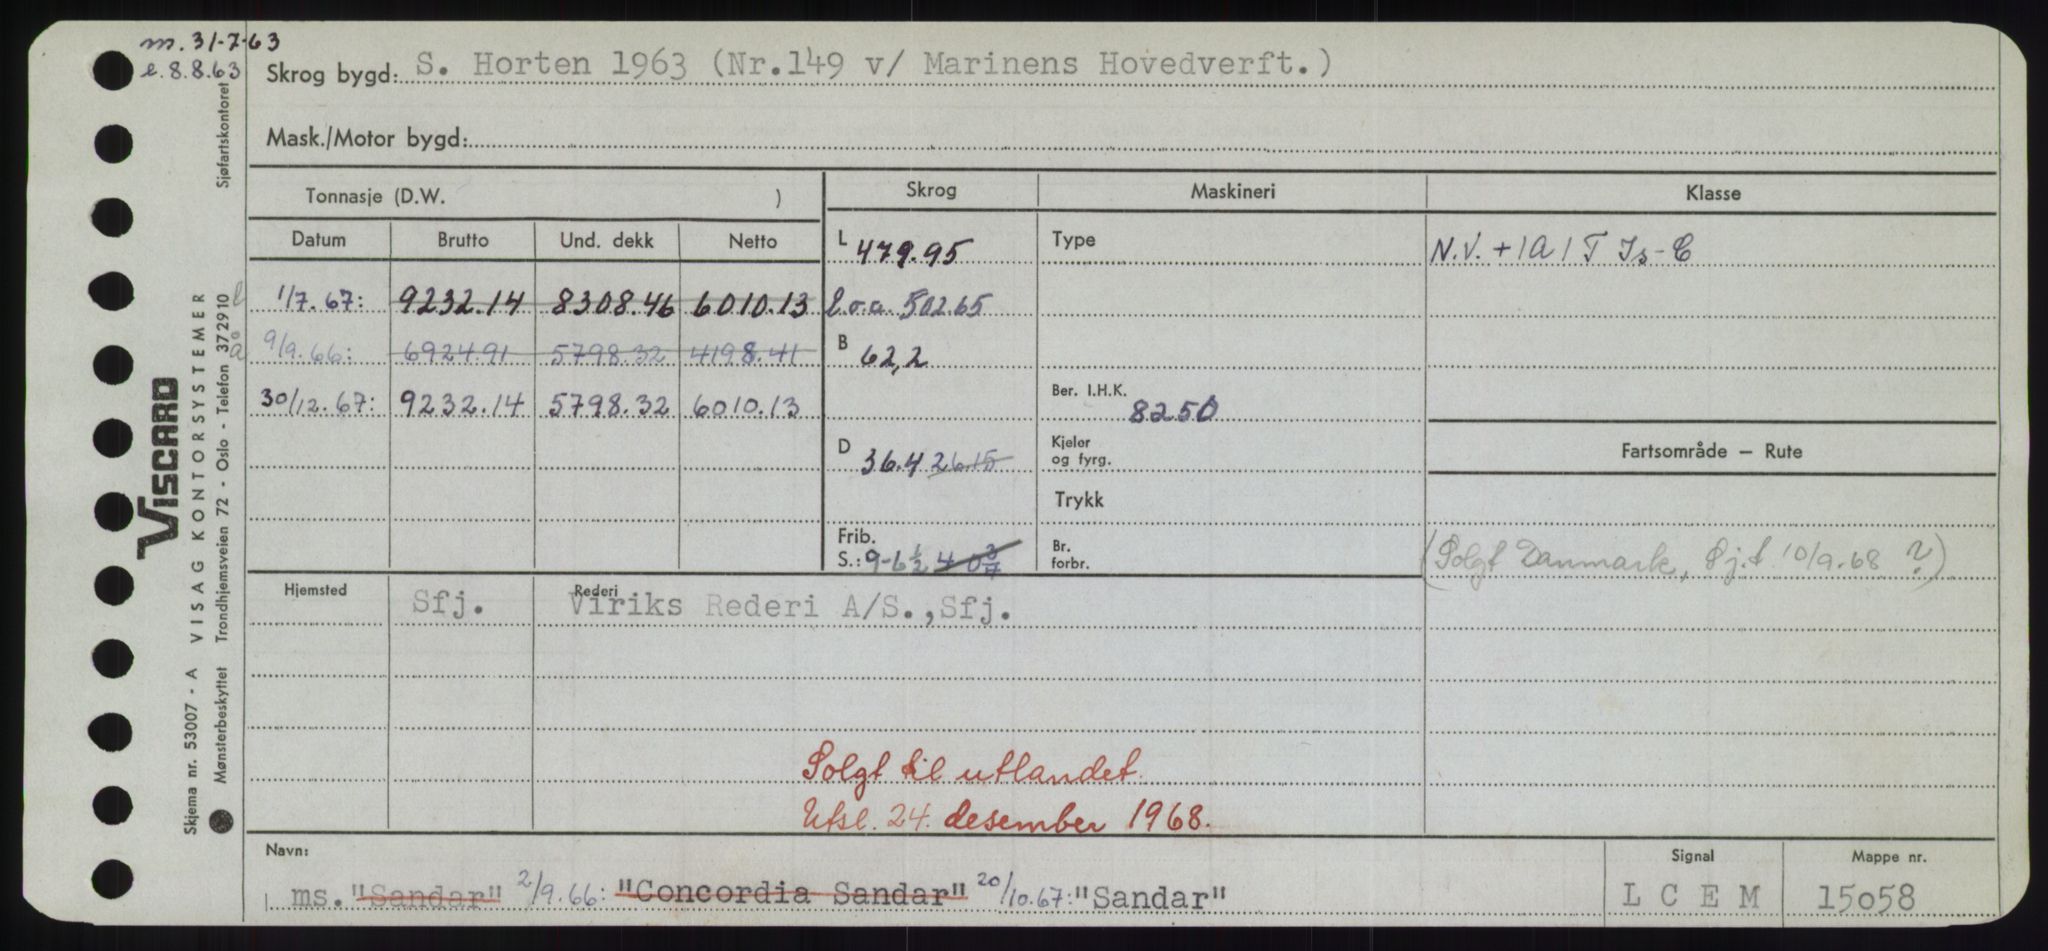 m. 31-7-63
e. 8.8.63
Skrog bygd: S. Horten 1963 (Nr.149 v/ Marinens Hovedverft.)
Mask./Motor bygd:
Tonnasje (D.W. )
Skrog Maskineri Klasse
Datum Brutto Und. dekk Netto
L 479.95 Type N.V. + 1A1 T Is-C
1/7.67: 9232.14 8308.46 6010.13 l.o.a. 502.65
9/9.66: 6924.91 5798.32 4198.41 B 62,2
30/12.67: 9232.14 5798.32 6010.13 Ber. I.H.K. 8250
D 36.4 26.15 Kjeler og fyrg. Fartsområde — Rute
Trykk
Frib. S.: 9-6 1/2 Br. forbr. (Solgt Danmark, Sj.t 10/9.68 ?)
Hjemsted Sfj. Rederi Viriks Rederi A/S.,Sfj.
Solgt til utlandet.
Utsl. 24. desember 1968.
Navn: Signal Mappe nr.
ms. "Sandar" 2/9.66: "Concordia Sandar" 20/10.67: "Sandar" L C E M 15o58
Skjema nr. 53007 - A VISAG KONTORSYSTEMER
VISCARD
Mønsterbeskyttet Trondhjemsveien 72 - Oslo - Telefon 372910
Sjøfartskontoret